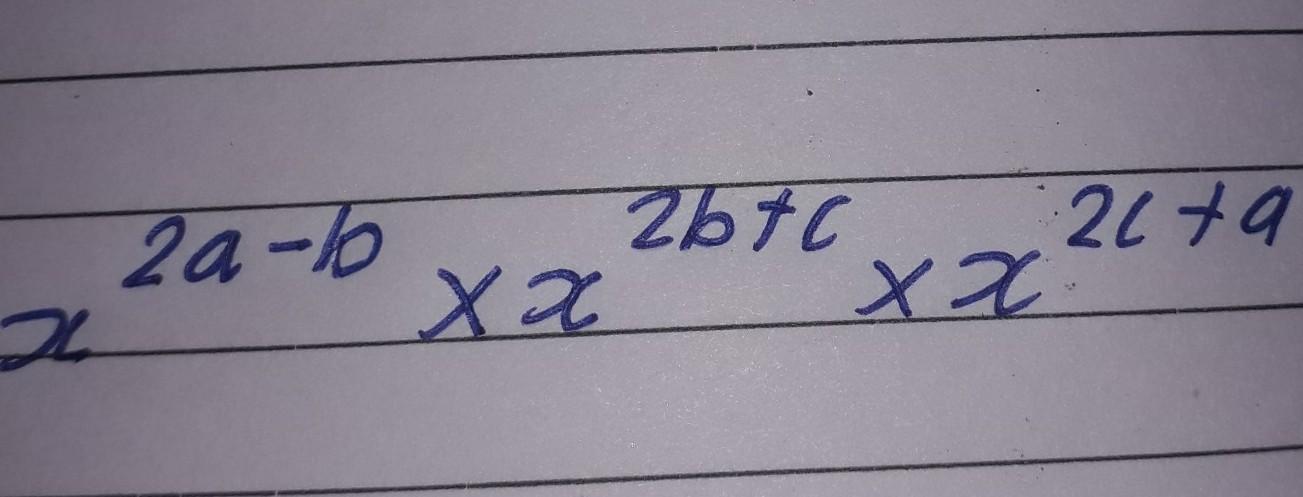 x^{2a-b} × x^{2b+c} × x^{2c+a}